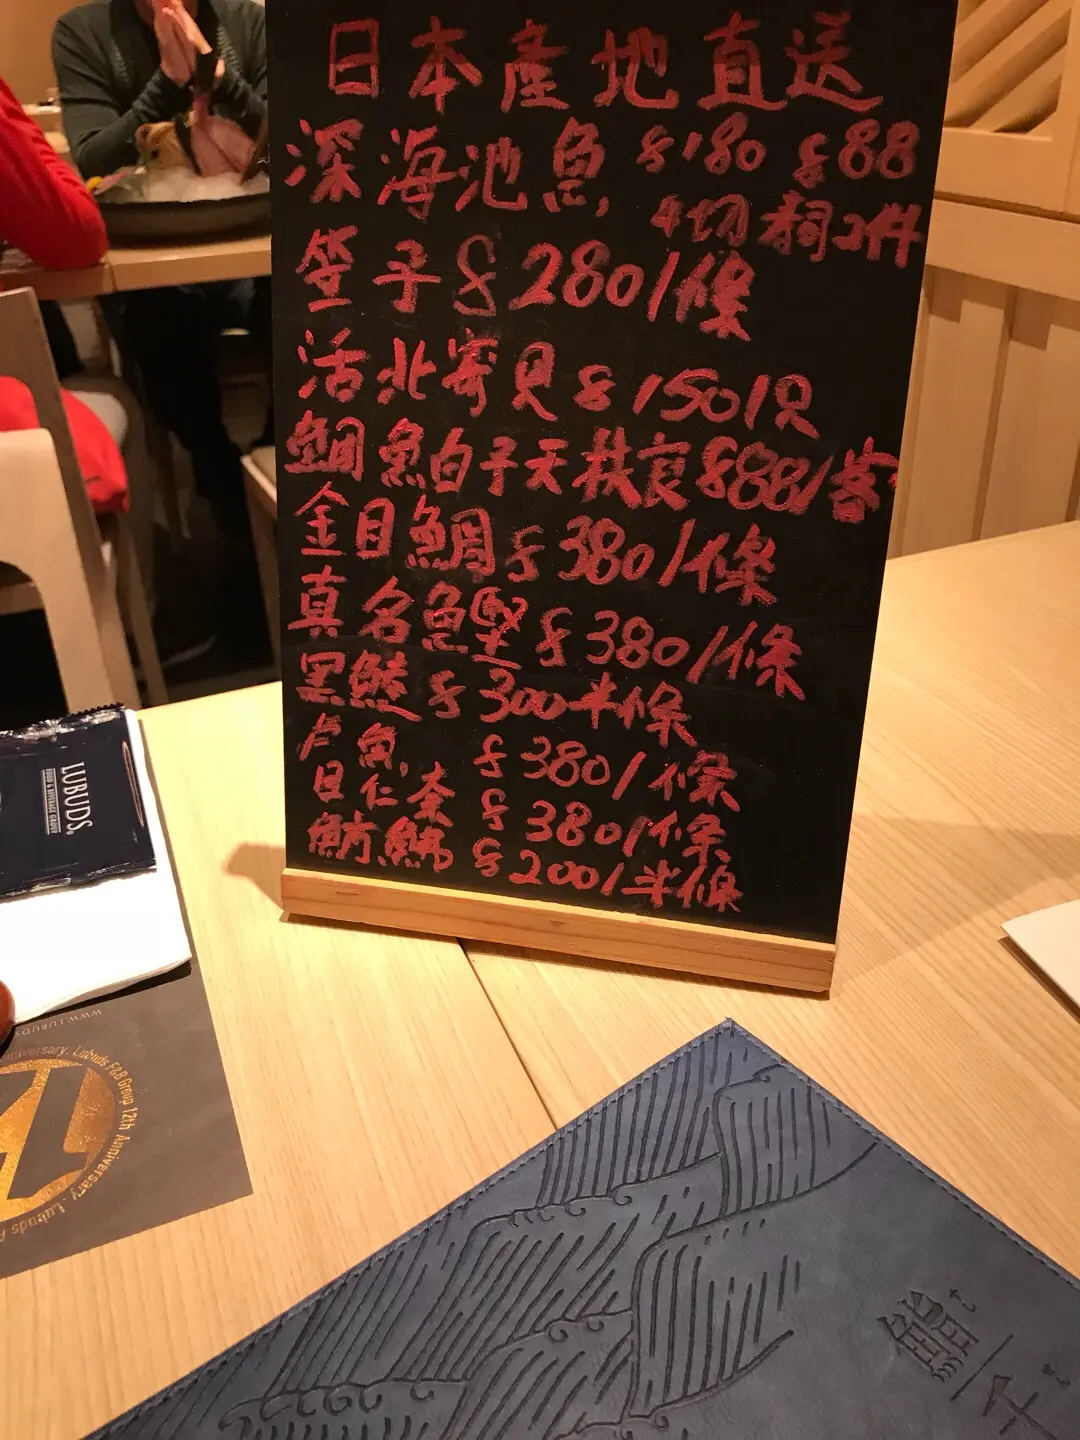 日本產地直送
深海池魚, $180 $88
4切 祠2件
笠子 $280/條
活北寄貝 $150/只
鯛魚白子天扶良 $88/客
金目鯛 $380/條
真名鰹 $380/條
黑鯥 $300半條
卢魚, $380/條
日仁奈 $380/條
魴鮄 $200/半條
LUBUDS.
FOOD & BEVERAGE GROUP
WWW.LUBUDS
nniversary. Lubuds F&B Group 12th Anniversary. Lubuds F